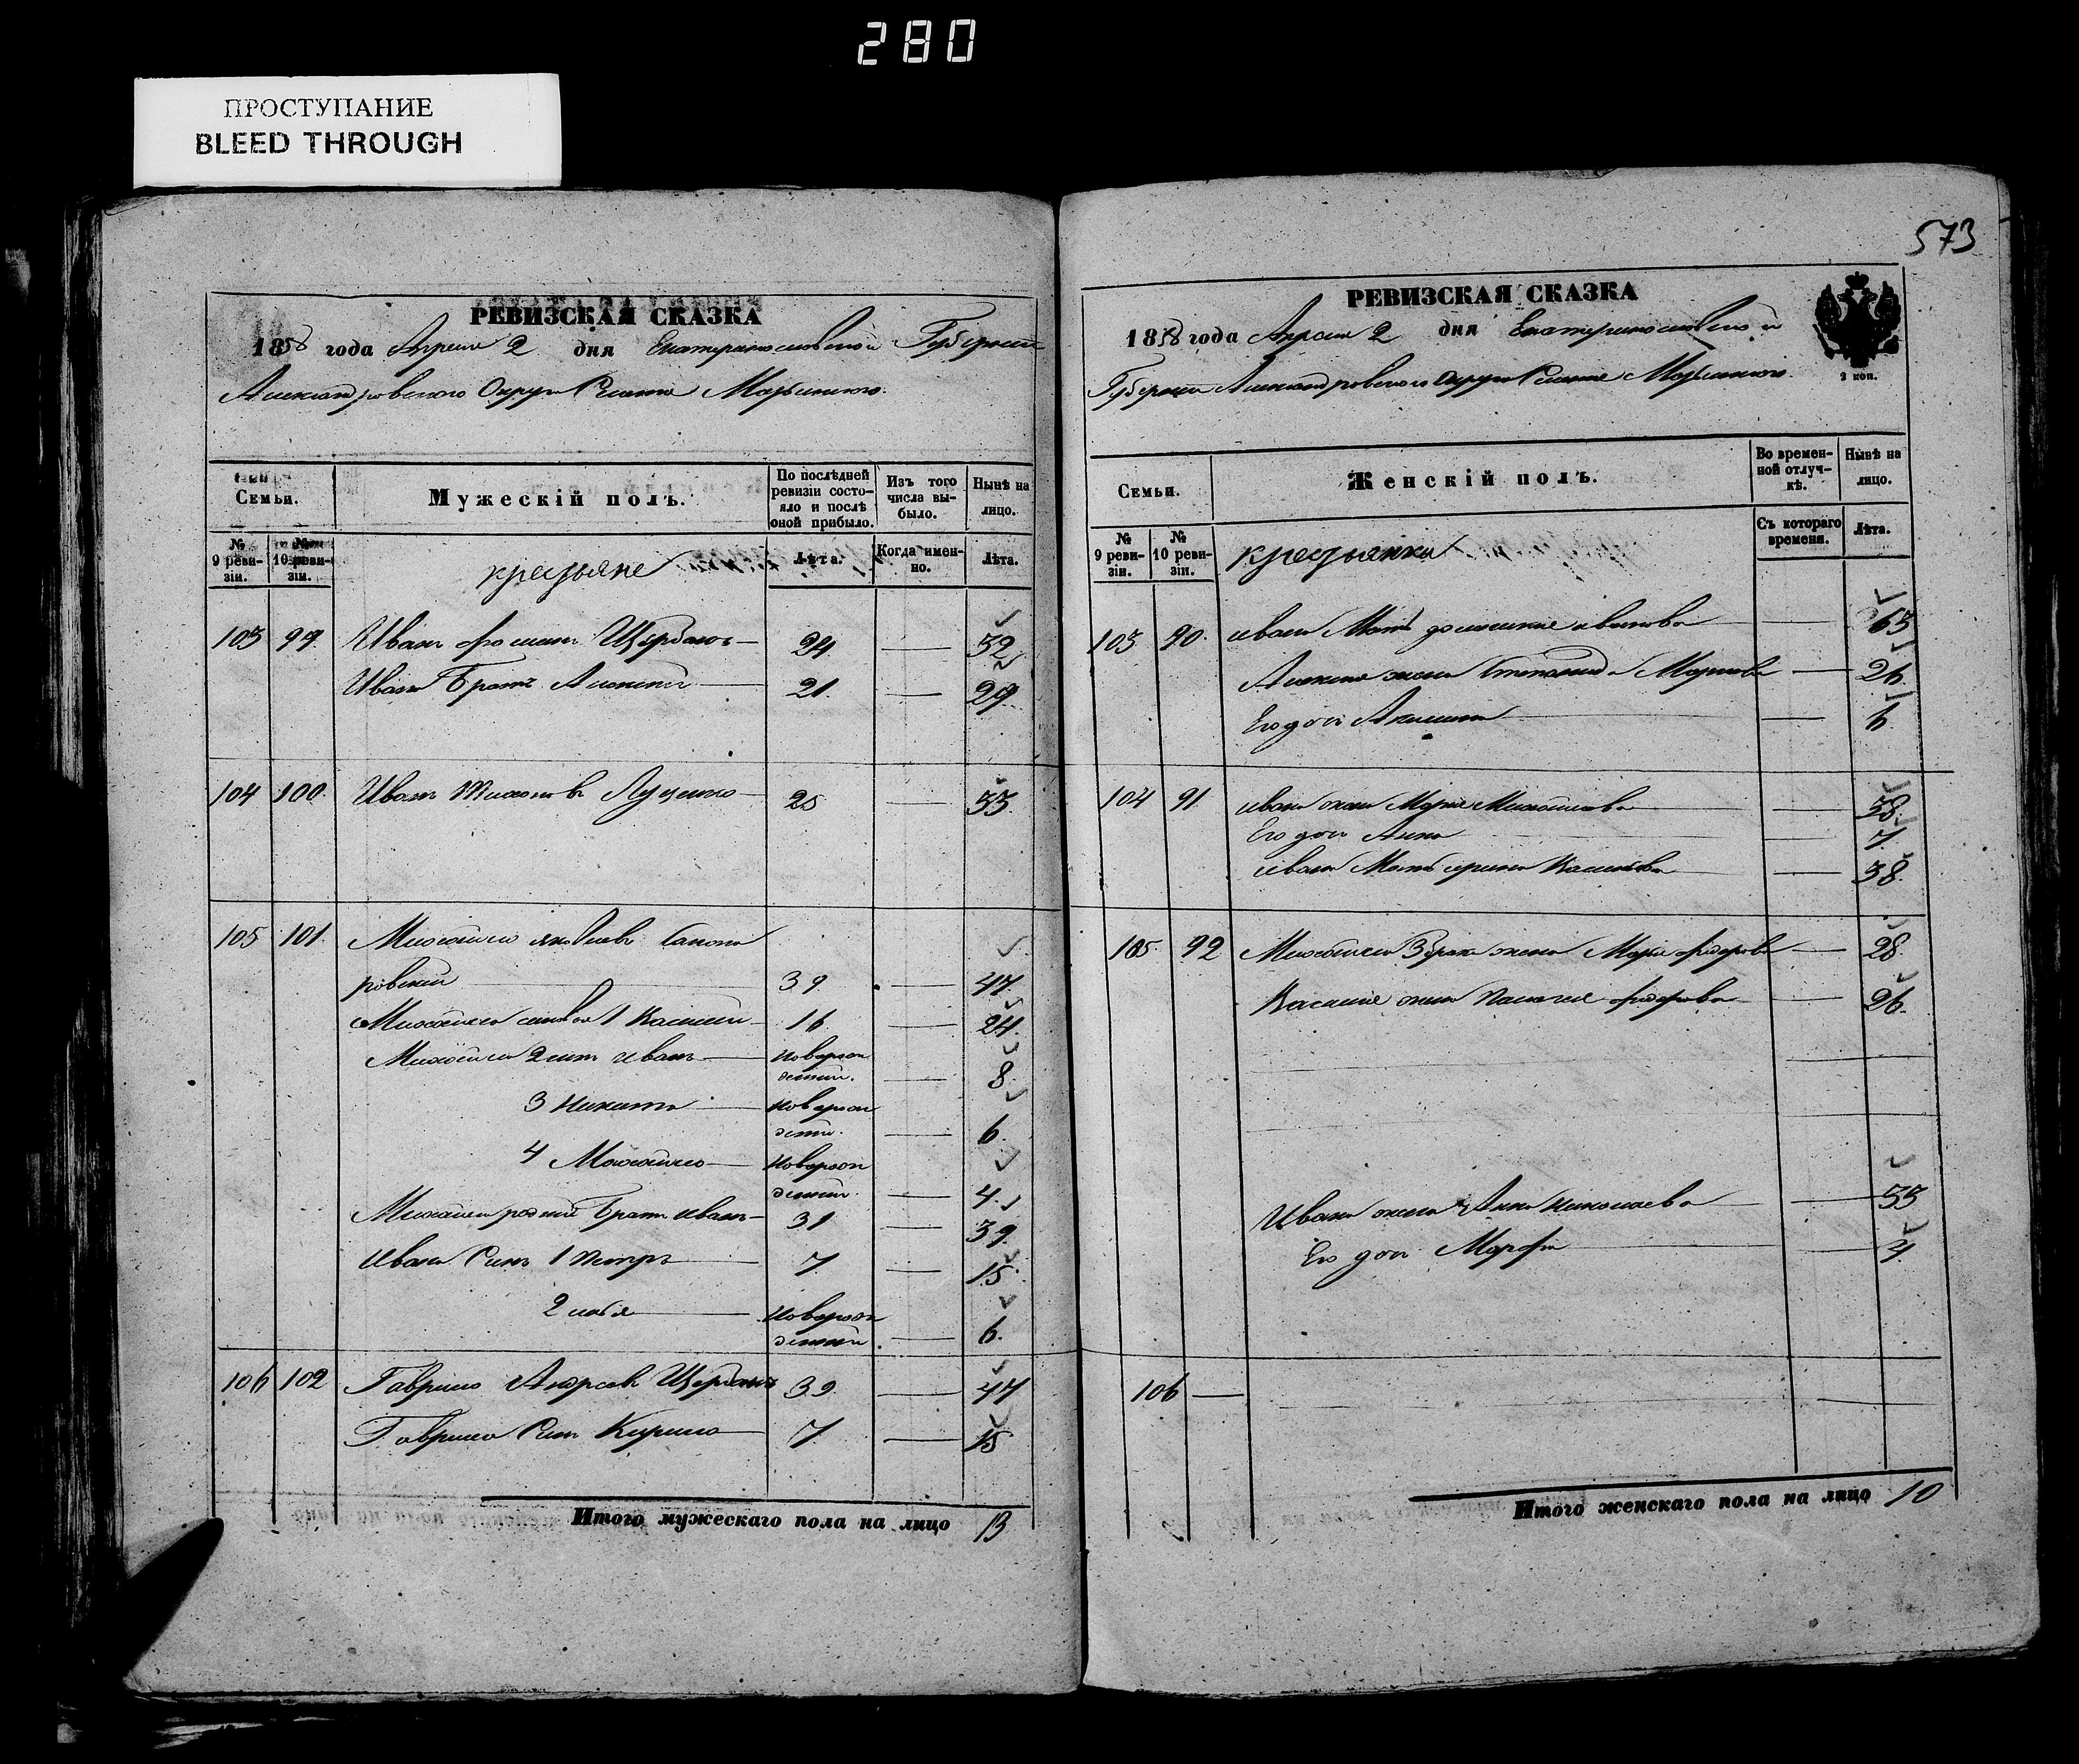 280
ПРОСТУПАНИЕ
BLEED THROUGH
РЕВИЗСКАЯ СКАЗКА
1858 года Апреля 2 дня Екатеринославской Губернии
Александровского Округа Селения Марьинского.
Семьи.
Мужескій полъ.
По послѣдней ревизіи состояло и послѣ оной прибыло.
Изъ того числа выбыло.
Нынѣ на лицо.
№ 9 ревизіи.
№ 10 ревизіи.
крестьяне
Лѣта.
Когда именно.
Лѣта.
103 99 Иванъ Щербакъ 24 32
Ивана Братъ Алексей 21. 29.
104 100. Иванъ Луценко 25 33.
105 101. Михайло Яковлевъ
ровский 39 47.
Михайла 1 Василий 16 24.
Михайла 2 сынъ Иванъ новорож
денный. 8.
3 Никита новорож
денный. 6.
4 Михайло новорож
денный. 4.
Михайла родной Братъ Иванъ 31 39.
Ивана Сынъ 1 Петръ 7. 15.
2 Илья новорож
денный 6.
106 102 Гаврило Андреевъ Щербакъ 39. 47
Гаврила Сынъ Кирило 7. 15
Итого мужескаго пола на лицо 13
573
РЕВИЗСКАЯ СКАЗКА
1858 года Апреля 2 дня Екатеринославской
Губернии Александровского Округа Селения Марьинского.
2 коп.
Семьи.
Женскій полъ.
Во временной отлучкѣ.
Нынѣ на лицо.
№ 9 ревизіи.
№ 10 ревизіи.
крестьянки
Съ котораго времени.
Лѣта.
103 90. Ивана Мать Иванова 63
Алексея жена Степанида Маркова 26.
Его дочь Акилина 6
104 91. Ивана жена Марья Михайлова 38.
Его дочь Анна 7.
Ивана Мать 38.
105. 92 Михайла жена Марья Федорова 28.
Василия жена Пелагея Федорова 26.
Ивана жена Анна Николаева 33
Его дочь Марфа 4.
106
Итого женскаго пола на лицо 10